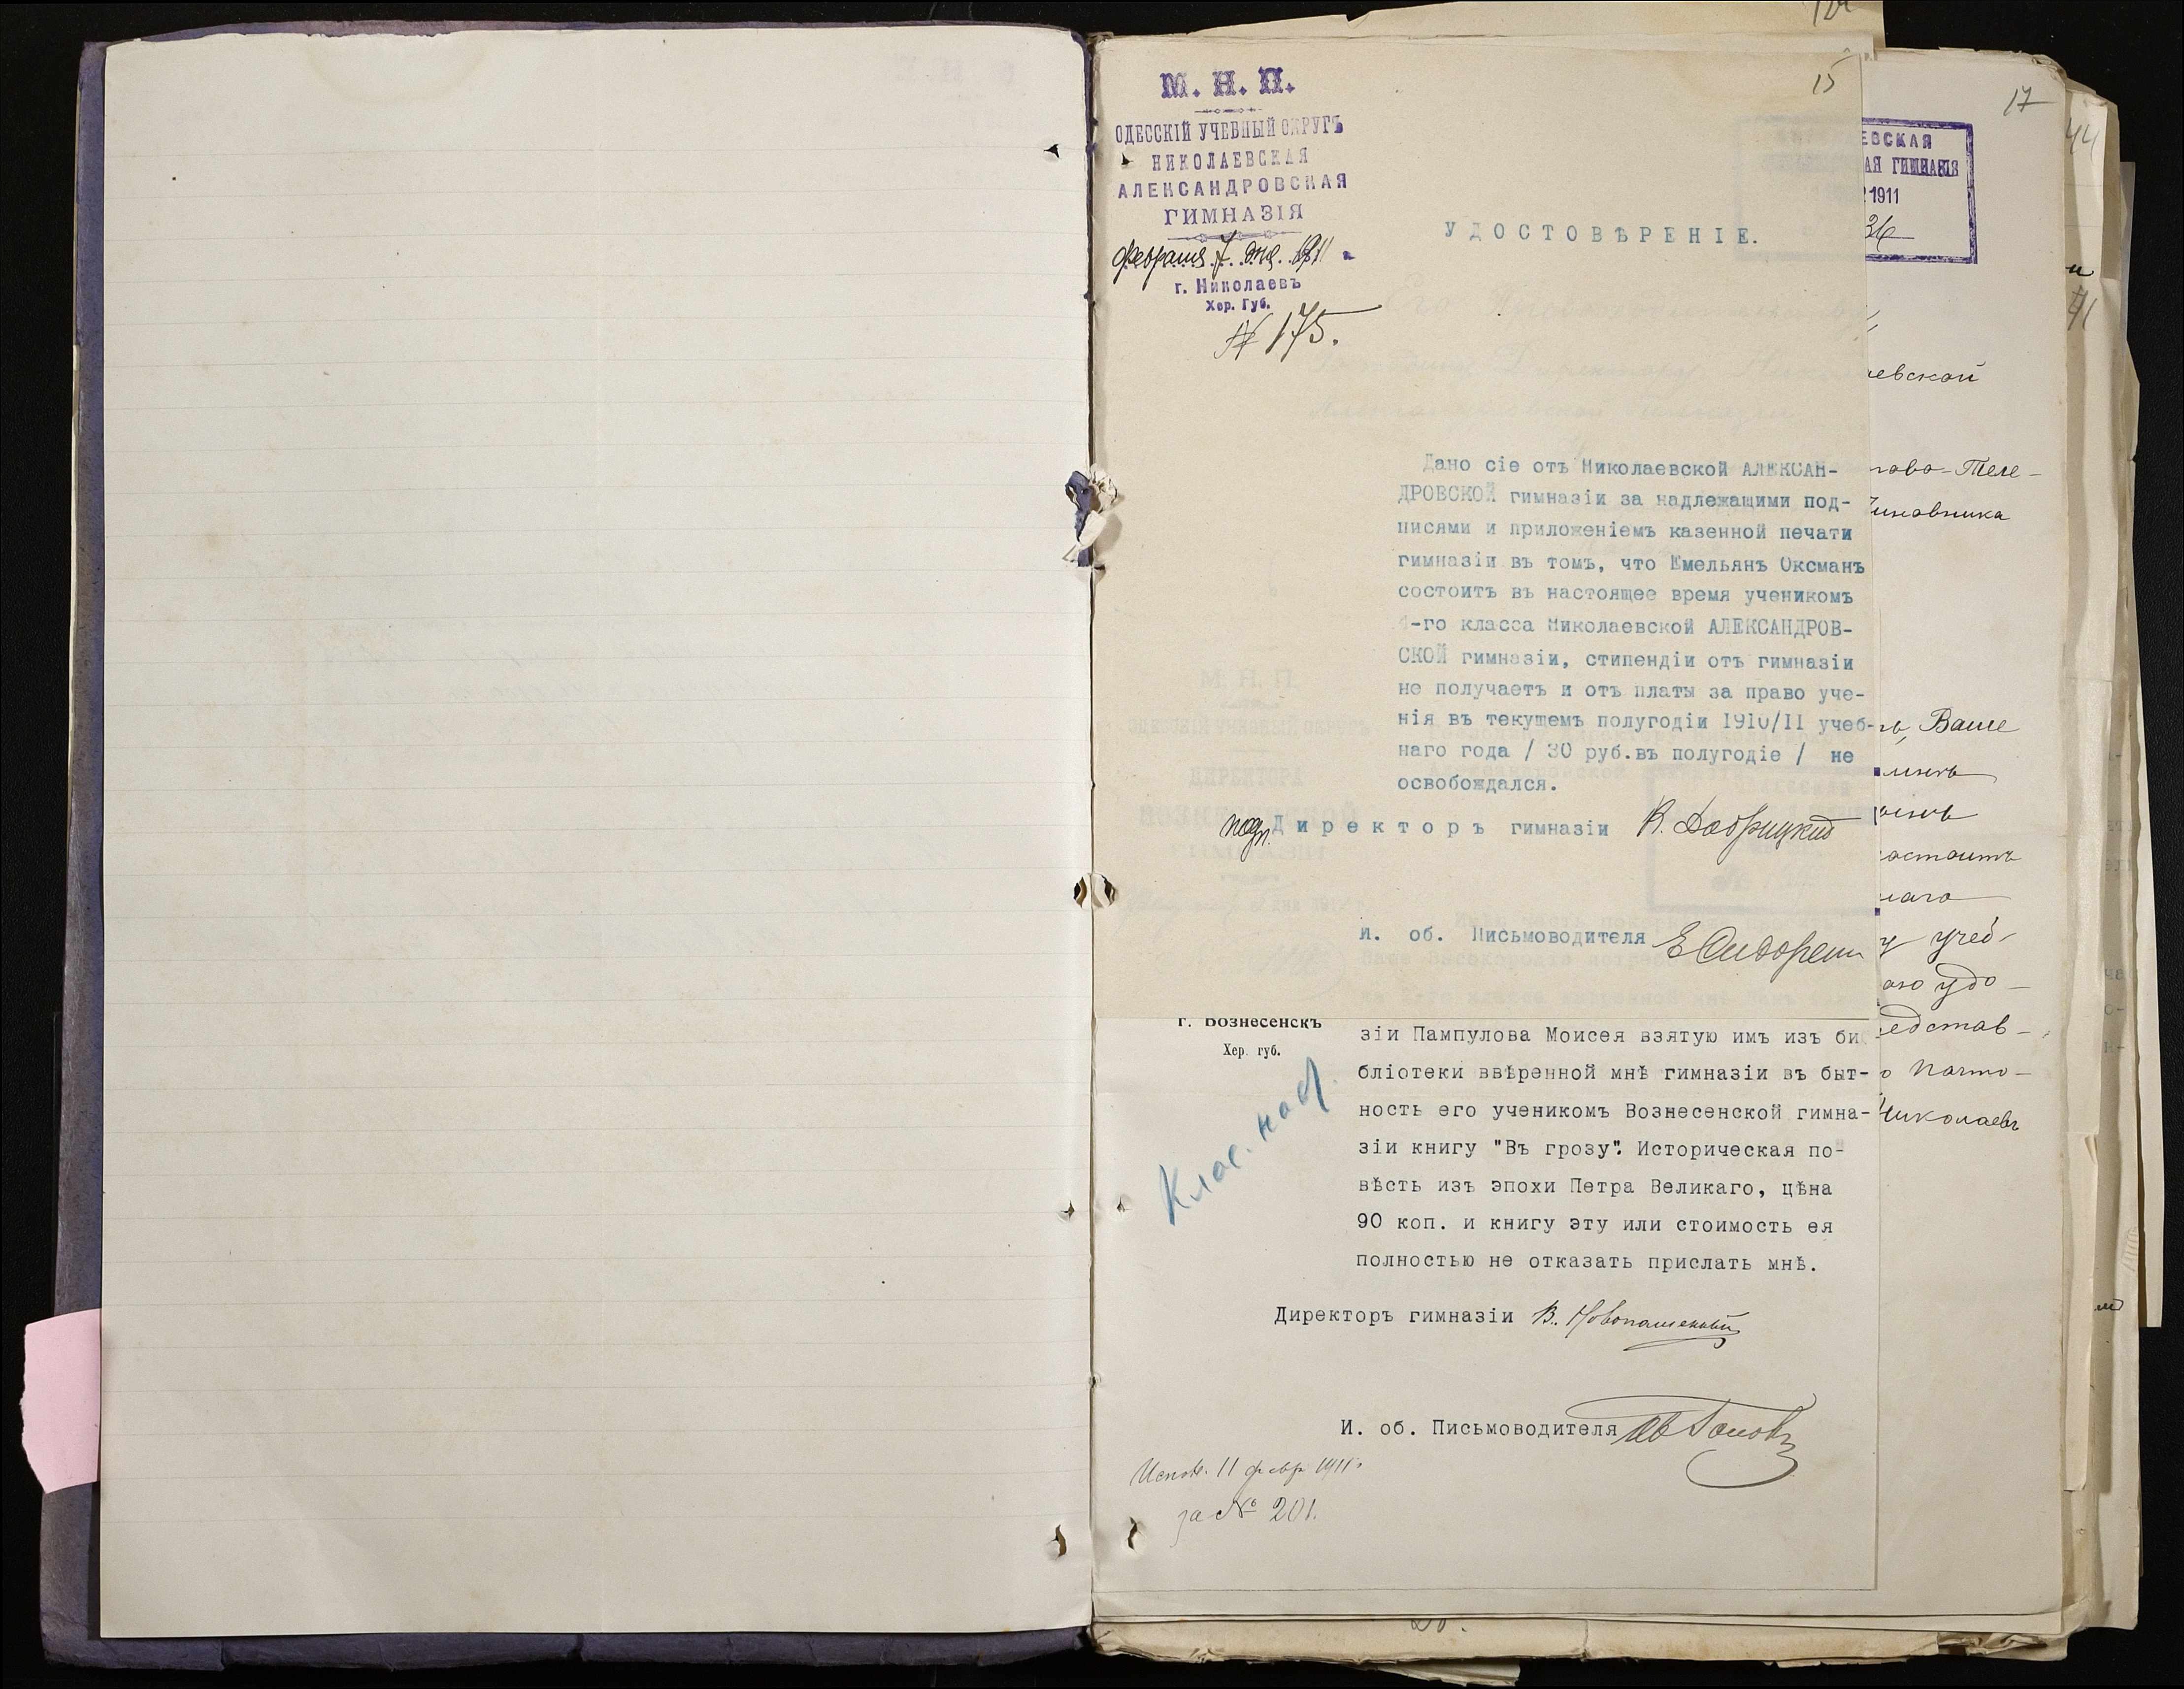 М. Н. П.
ОДЕССКІЙ УЧЕБНЫЙ ОКРУГЪ
НИКОЛАЕВСКАЯ
АЛЕКСАНДРОВСКАЯ
ГИМНАЗІЯ
Февраля 7 дня 1911 г.
г. Николаевъ
Хер. Губ.
№ 175.
15
УДОСТОВѢРЕНІЕ.
Дано сіе отъ Николаевской АЛЕКСАН-
ДРОВСКОЙ гимназіи за надлежащими под-
писями и приложеніемъ казенной печати
гимназіи въ томъ, что Емельянъ Оксманъ
состоитъ въ настоящее время ученикомъ
-го класса Николаевской АЛЕКСАНДРОВ-
СКОЙ гимназіи, стипендіи отъ гимназіи
не получаетъ и отъ платы за право уче-
нія въ текущемъ полугодіи 1910/II учеб-
наго года / 30 руб.въ полугодіе / не
освобождался.
подп. Директоръ гимназіи
И. об. Письмоводителя Е Сидорен
г. Вознесенскъ
Хер. губ.
Клас. наст.
зіи Пампулова Моисея взятую имъ изъ би
бліотеки ввѣренной мнѣ гимназіи въ быт-
ность его ученикомъ Вознесенской гимна-
зіи книгу "Въ грозу". Историческая по-
вѣсть изъ эпохи Петра Великаго, цѣна
90 коп. и книгу эту или стоимость ея
полностью не отказать прислать мнѣ.
Директоръ гимназіи В. Новопашенный
И. об. Письмоводителя
Исполн. 11 февр 1911 г.
за № 201.
17
ЕВСКАЯ
АЯ ГИМНАЗІЯ
1911
36
аевской
тово-Теле-
Чиновника
ъ, Ваше
остоитъ
наго
у учеб-
ою удо-
едстав-
о Почто-
Николаевъ
44